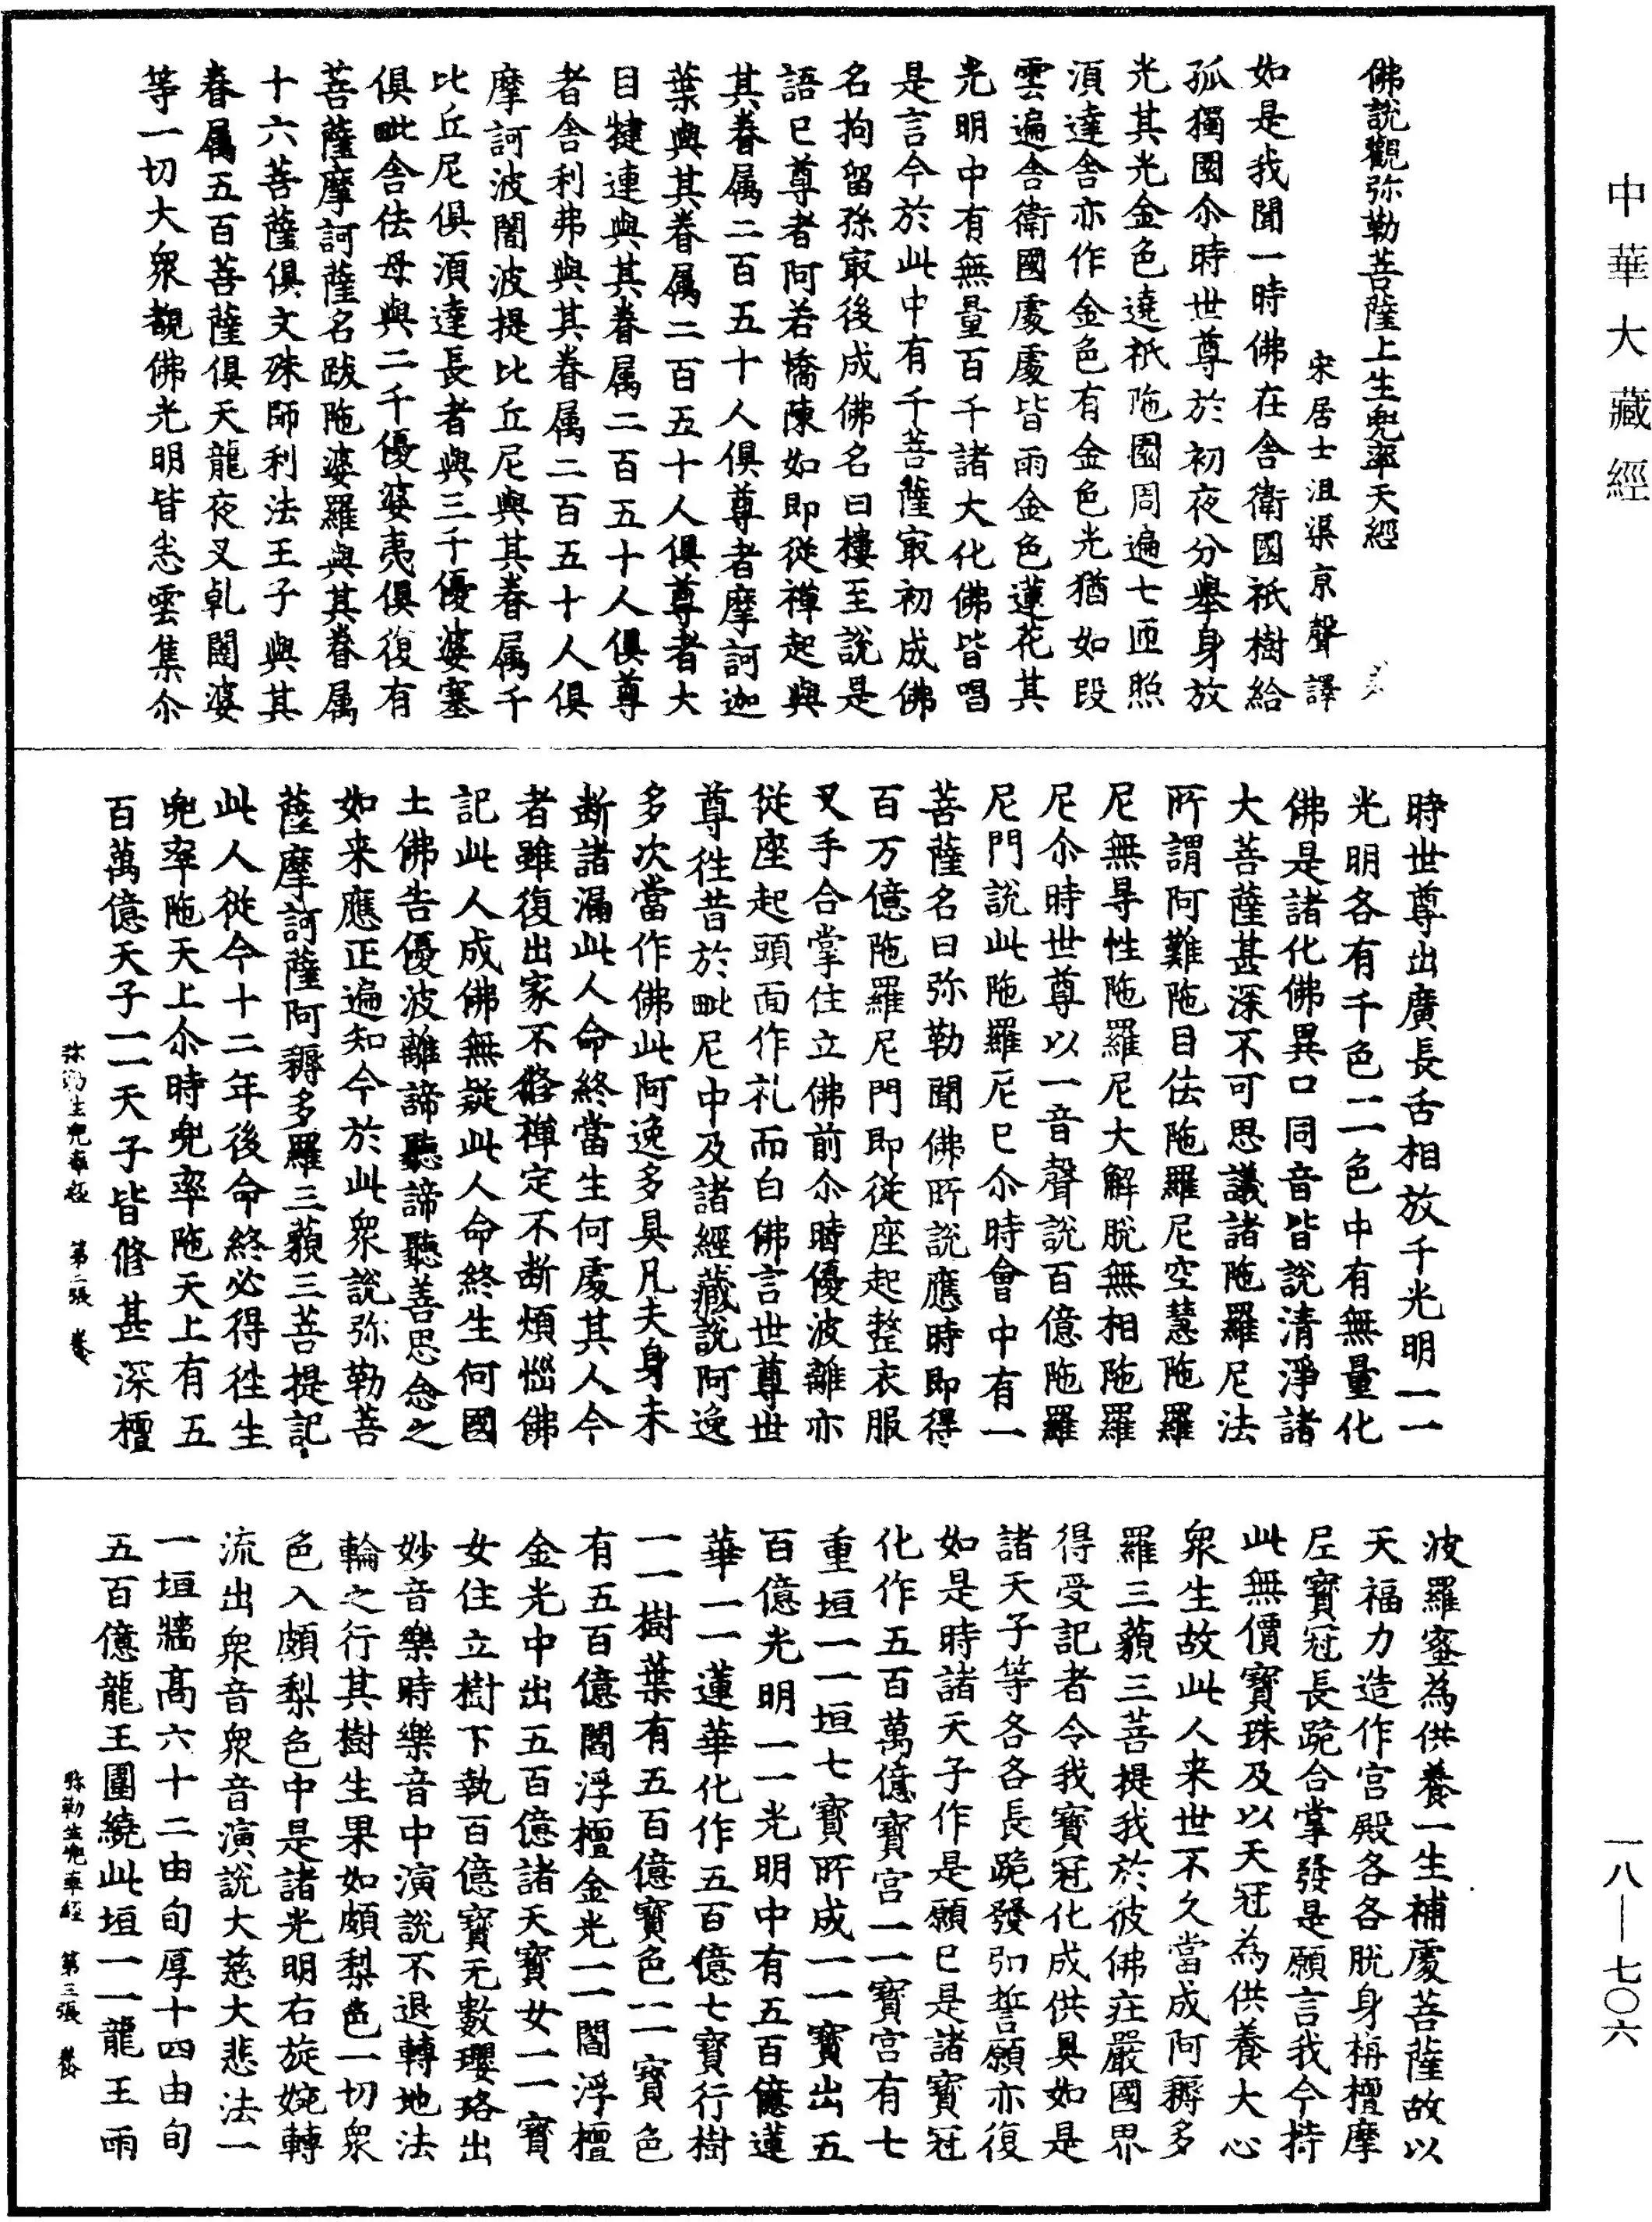 中華大藏經
佛說觀弥勒菩薩上生兜率天經
宋居士沮渠京聲譯
如是我聞一時佛在舍衛國祇樹給
孤獨園尒時世尊於初夜分舉身放
光其光金色遶祇陁園周遍七匝照
湏達舍亦作金色有金色光猶如段
雲遍舍衛國處處皆雨金色蓮花其
光明中有無量百千諸大化佛皆唱
是言今於此中有千菩薩㝡初成佛
名拘留孫㝡後成佛名曰樓至說是
語已尊者阿若憍陳如即從禪起與
其眷属二百五十人俱尊者摩訶迦
葉與其眷属二百五十人俱尊者大
目揵連與其眷属二百五十人俱尊
者舍利弗與其眷属二百五十人俱
摩訶波闍波提比丘尼與其眷属千
比丘尼俱湏達長者與三千優婆塞
俱毗舍佉母與二千優婆夷俱復有
菩薩摩訶薩名跋陁婆羅與其眷属
十六菩薩俱文殊師利法王子與其
眷属五百菩薩俱天龍夜叉乹闥婆
等一切大眾覩佛光明皆悉雲集尒
時世尊出廣長舌相放千光明一一
光明各有千色一一色中有無量化
佛是諸化佛異口同音皆說清淨諸
大菩薩甚深不可思議諸陁羅尼法
所謂阿難陁目佉陁羅尼空慧陁羅
尼無㝵性陁羅尼大解脫無相陁羅
尼尒時世尊以一音聲說百億陁羅
尼門說此陁羅尼已尒時會中有一
菩薩名曰弥勒聞佛所說應時即得
百万億陁羅尼門即從座起整衣服
叉手合掌住立佛前尒時優波離亦
從座起頭面作礼而白佛言世尊世
尊往昔於毗尼中及諸經藏說阿逸
多次當作佛此阿逸多具凡夫身未
断諸漏此人命終當生何處其人今
者雖復出家不脩禪定不断煩惱佛
記此人成佛無疑此人命終生何國
土佛告優波離諦聽諦聽善思念之
如来應正遍知今於此眾說弥勒菩
薩摩訶薩阿耨多羅三藐三菩提記
此人從今十二年後命終必得往生
兜率陁天上尒時兜率陁天上有五
百萬億天子一一天子皆脩甚深檀
弥勒生兜率經 第二張 養
波羅蜜為供養一生補處菩薩故以
天福力造作宮殿各各脫身栴檀摩
尼寶冠長跪合掌發是願言我今持
此無價寶珠及以天冠為供養大心
眾生故此人来世不久當成阿耨多
羅三藐三菩提我於彼佛庄嚴國界
得受記者令我寶冠化成供具如是
諸天子等各各長跪發弘誓願亦復
如是時諸天子作是願已是諸寶冠
化作五百萬億寶宮一一寶宮有七
重垣一一垣七寶所成一一寶出五
百億光明一一光明中有五百億蓮
華一一蓮華化作五百億七寶行樹
一一樹葉有五百億寶色一一寶色
有五百億閻浮檀金光一一閻浮檀
金光中出五百億諸天寶女一一寶
女住立樹下執百億寶无數瓔珞出
妙音樂時樂音中演說不退轉地法
輪之行其樹生果如頗梨色一切眾
色入頗梨色中是諸光明右旋婉轉
流出眾音眾音演說大慈大悲法一
一垣牆高六十二由旬厚十四由旬
五百億龍王圍繞此垣一一龍王雨
弥勒生兜率經 第三張 養
一八—七〇六